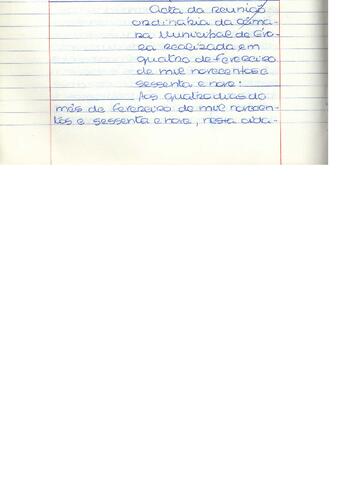 Acta da reunião
ordinária da Câma-
ra Municipal de Évo-
ra realizada em
quatro de fevereiro
de mil novecentos e
sessenta e nove:
Aos quatro dias do
mês de fevereiro de mil novecen-
tos e sessenta e nove, nesta cida-